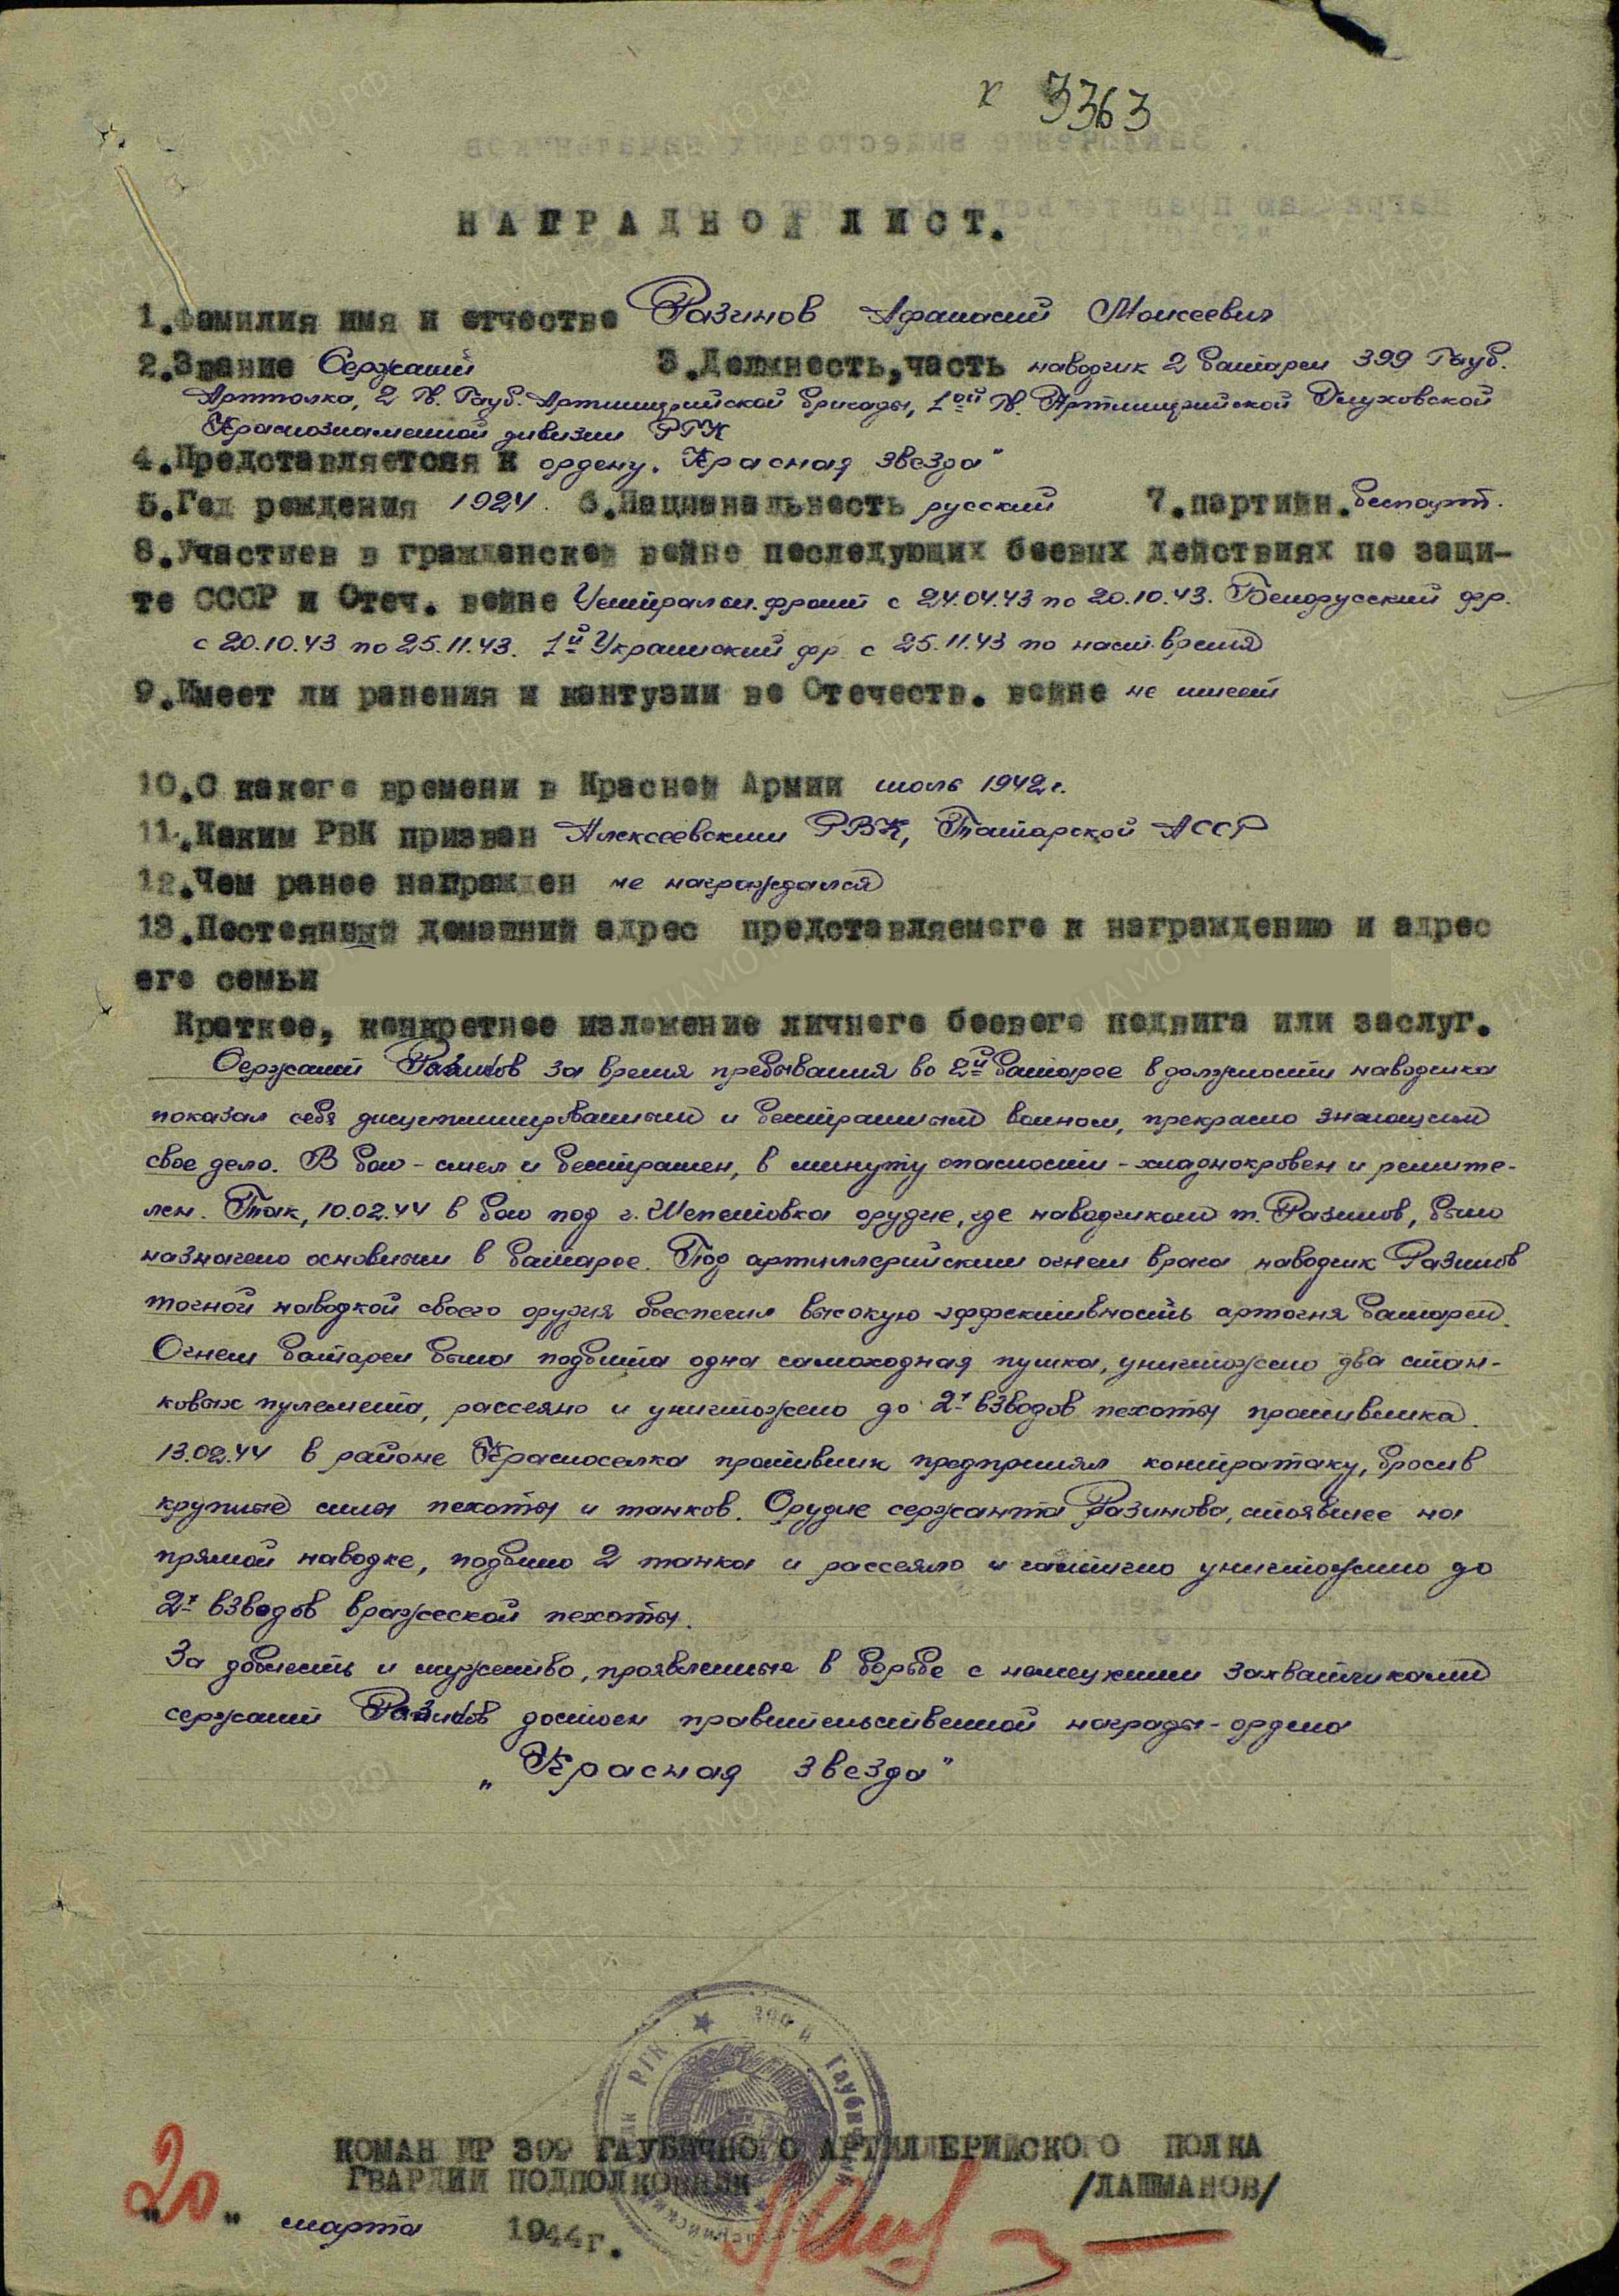 х 3363
НАГРАДНОЙ ЛИСТ.
1.Фамилия имя и отчество Разинов Афанасий Моисеевич
2.Звание Сержант 3.Должность,часть наводчик 2 батареи 399 Гауб.
Артполка, 2 Гв. Гауб. Артиллерийской бригады, 1ой Гв. Артиллерийской Глуховской
Краснознаменной дивизии РГК
4.Представляется к ордену „Красная звезда"
5.Год рождения 1924. 6.Национальность русский 7.партийн. беспарт.
8.Участиев в гражданской войне последующих боевых действиях по защи-
те СССР и Отеч. войне Централън. фронт с 24.04.43 по 20.10.43. Белорусский фр.
с 20.10.43 по 25.11.43. 1й Украинский фр. с 25.11.43 по наст. время
9.Имеет ли ранения и контузии во Отечеств. войне не имеет
10.С какого времени в Красной Армии июль 1942г.
11.Каким РВК призван Алексеевским РВК, Татарской АССР
12.Чем ранее награжден не награждался
13.Постоянный домашний адрес представляемого к награждению и адрес
его семьи
Краткое, конкретное изложение личного боевого подвига или заслуг.
Сержант Разинов за время пребывания во 2й батарее в должности наводчика
показал себя дисциплинированным и бесстрашным воином, прекрасно знающим
свое дело. В бою - смел и бесстрашен, в минуту опасности - хладнокровен и решите-
лен. Так, 10.02.44 в бою под г. Шепетовка орудие, где наводчиком т. Разинов, было
назначено основным в батарее. Под артиллерийским огнем врага наводчик Разинов
точной наводкой своего орудия обеспечил высокую эффективность артогня батареи.
Огнем батареи была подбита одна самоходная пушка, уничтожено два стан-
ковых пулемета, рассеяно и уничтожено до 2х взводов пехоты противника.
13.02.44 в районе Красноселка противник предпринял контратаку, бросив
крупные силы пехоты и танков. Орудие сержанта Разинова, стоявшее на
прямой наводке, подбило 2 танка и рассеяло и частично уничтожило до
2х взводов вражеской пехоты.
За доблесть и мужество, проявленные в борьбе с немецкими захватчиками
сержант Разинов достоен правительственной награды - ордена
„Красная звезда"
КОМАНДИР 399 ГАУБИЧНОГО АРТИЛЛЕРИЙСКОГО ПОЛКА
ГВАРДИИ ПОДПОЛКОВНИК /ЛАШМАНОВ/
„20" марта 1944г.